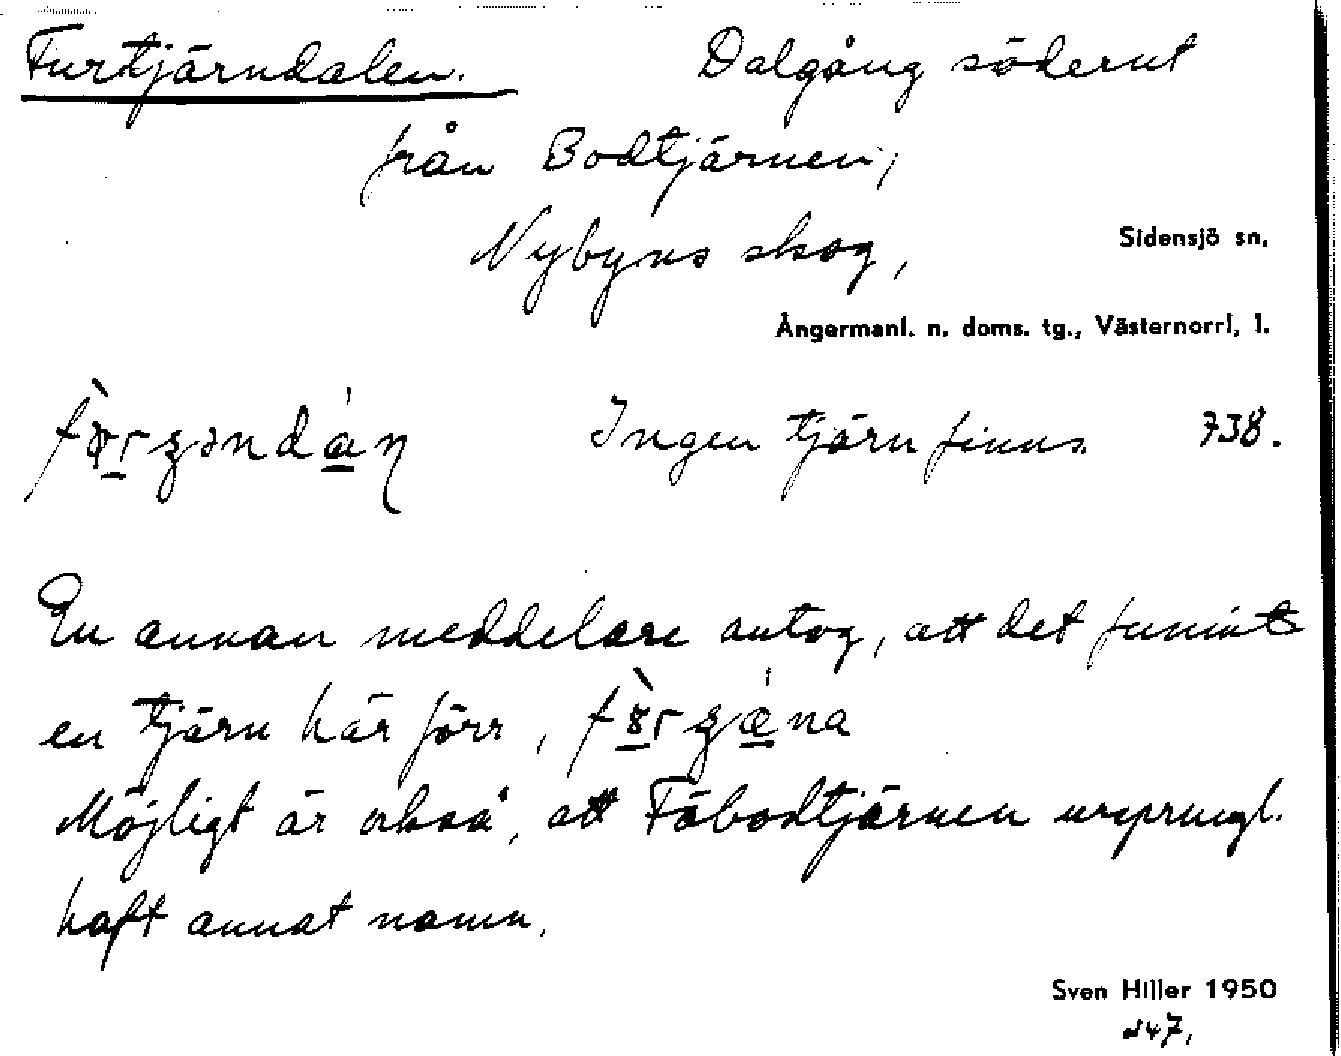 Furtjärndalen. Dalgång söderut
från Bodtjärnen,
Nybyns skog,
Sidensjö sn.
Ångermanl. n. doms. tg., Västernorrl. l.
Ingen tjärn finns. 738.
En annan meddelare antog, att det funnits
en tjärn här förr,
Möjligt är också, att Fäbodtjärnen ursprungl.
haft annat namn.
Sven Hiller 1950